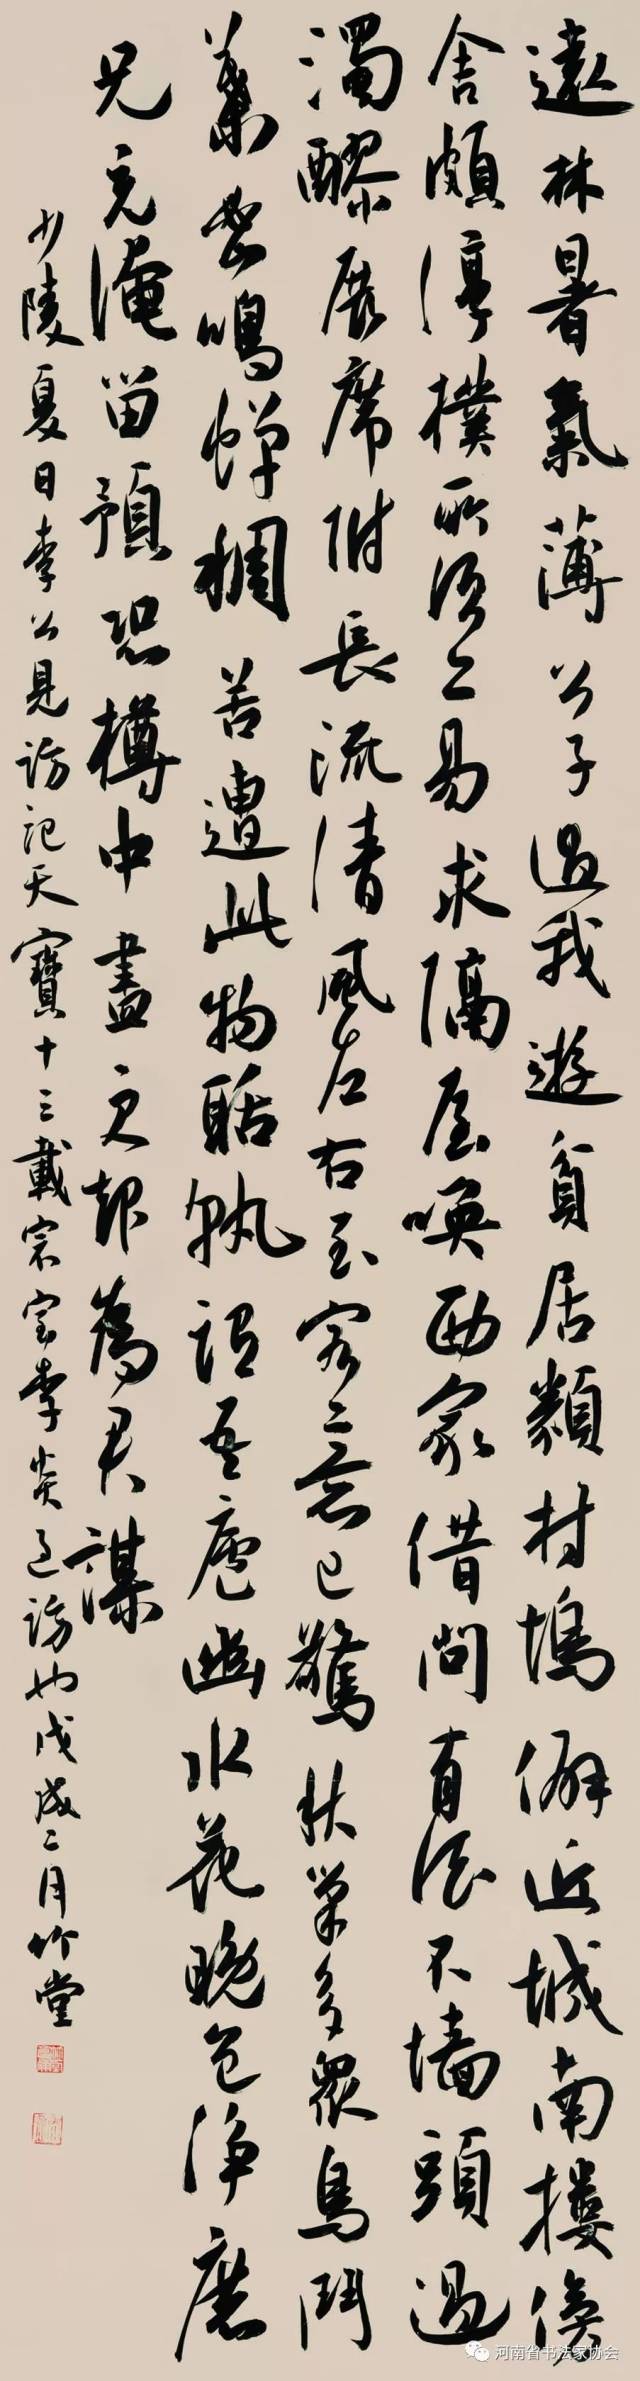 遠林暑氣薄公子過我遊貧居類村塢僻近城南樓傍
舍頗淳樸所須亦易求隔屋喚西家借問有酒不墻頭過
濁醪展席俯長流清風左右至客意已驚秋巢多眾鳥鬥
葉密鳴蟬稠苦遭此物聒孰謂吾廬幽水花晚色淨庶
足充淹留預恐樽中盡更起為君謀
少陵夏日李公見訪記天寶十三載宗室李炎過訪也戊戌二月竹堂
河南省书法家协会